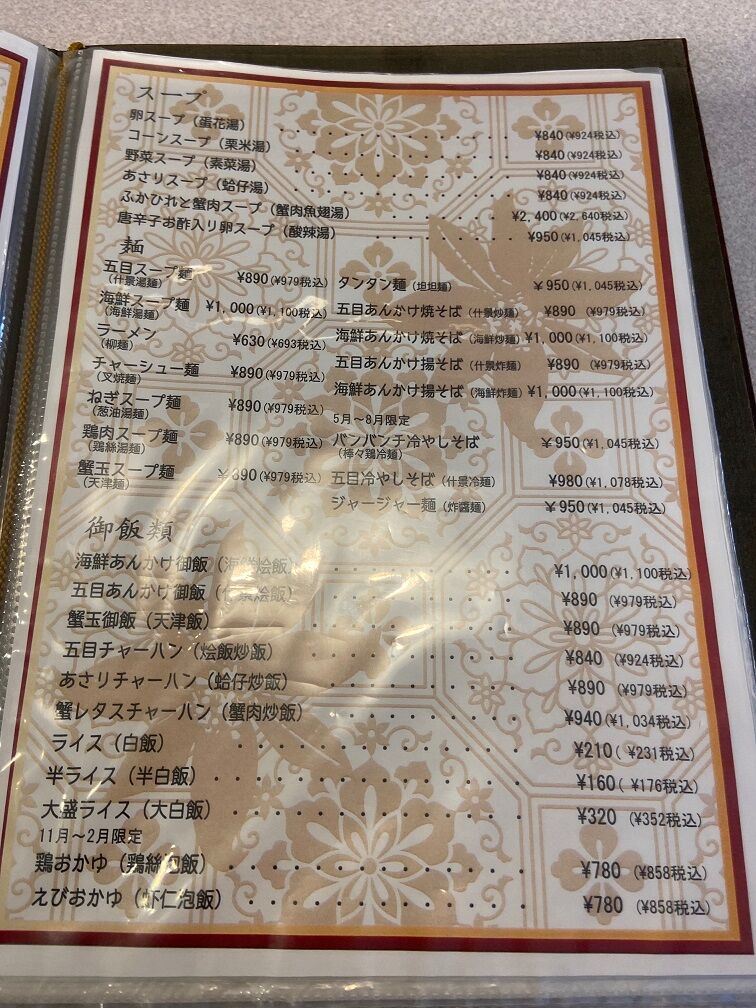 スープ
卵スープ（蛋花湯） ¥840(¥924税込)
コーンスープ（栗米湯） ¥840(¥924税込)
野菜スープ（素菜湯） ¥840(¥924税込)
あさりスープ（蛤仔湯） ¥840(¥924税込)
ふかひれと蟹肉スープ（蟹肉魚翅湯） ¥2,400(¥2,640税込)
唐辛子お酢入り卵スープ（酸辣湯） ¥950(¥1,045税込)
麺
五目スープ麺 ¥890(¥979税込)
(什景湯麺)
海鮮スープ麺 ¥1,000(¥1,100税込)
(海鮮湯麺)
ラーメン ¥630(¥693税込)
(柳麺)
チャーシュー麺 ¥890(¥979税込)
(叉焼麺)
ねぎスープ麺 ¥890(¥979税込)
(葱油湯麺)
鶏肉スープ麺 ¥890(¥979税込)
(鶏絲湯麺)
蟹玉スープ麺 ¥890(¥979税込)
(天津麺)
タンタン麺（坦坦麺） ¥950(¥1,045税込)
五目あんかけ焼そば（什景炒麺） ¥890 (¥979税込)
海鮮あんかけ焼そば（海鮮炒麺） ¥1,000(¥1,100税込)
五目あんかけ揚そば（什景炸麺） ¥890 (¥979税込)
海鮮あんかけ揚そば（海鮮炸麺） ¥1,000(¥1,100税込)
5月～8月限定
バンバンチ冷やしそば ¥950(¥1,045税込)
(棒々鶏冷麺)
五目冷やしそば（什景冷麺） ¥980(¥1,078税込)
ジャージャー麺（炸醤麺） ¥950(¥1,045税込)
御飯類
海鮮あんかけ御飯（海鮮烩飯） ¥1,000(¥1,100税込)
五目あんかけ御飯（什景烩飯） ¥890 (¥979税込)
蟹玉御飯（天津飯） ¥890 (¥979税込)
五目チャーハン（烩飯炒飯） ¥840(¥924税込)
あさりチャーハン（蛤仔炒飯） ¥890 (¥979税込)
蟹レタスチャーハン（蟹肉炒飯） ¥940(¥1,034税込)
ライス（白飯） ¥210( ¥231税込)
半ライス（半白飯） ¥160( ¥176税込)
大盛ライス（大白飯） ¥320 (¥352税込)
11月～2月限定
鶏おかゆ（鶏絲泡飯） ¥780 (¥858税込)
えびおかゆ（虾仁泡飯） ¥780 (¥858税込)